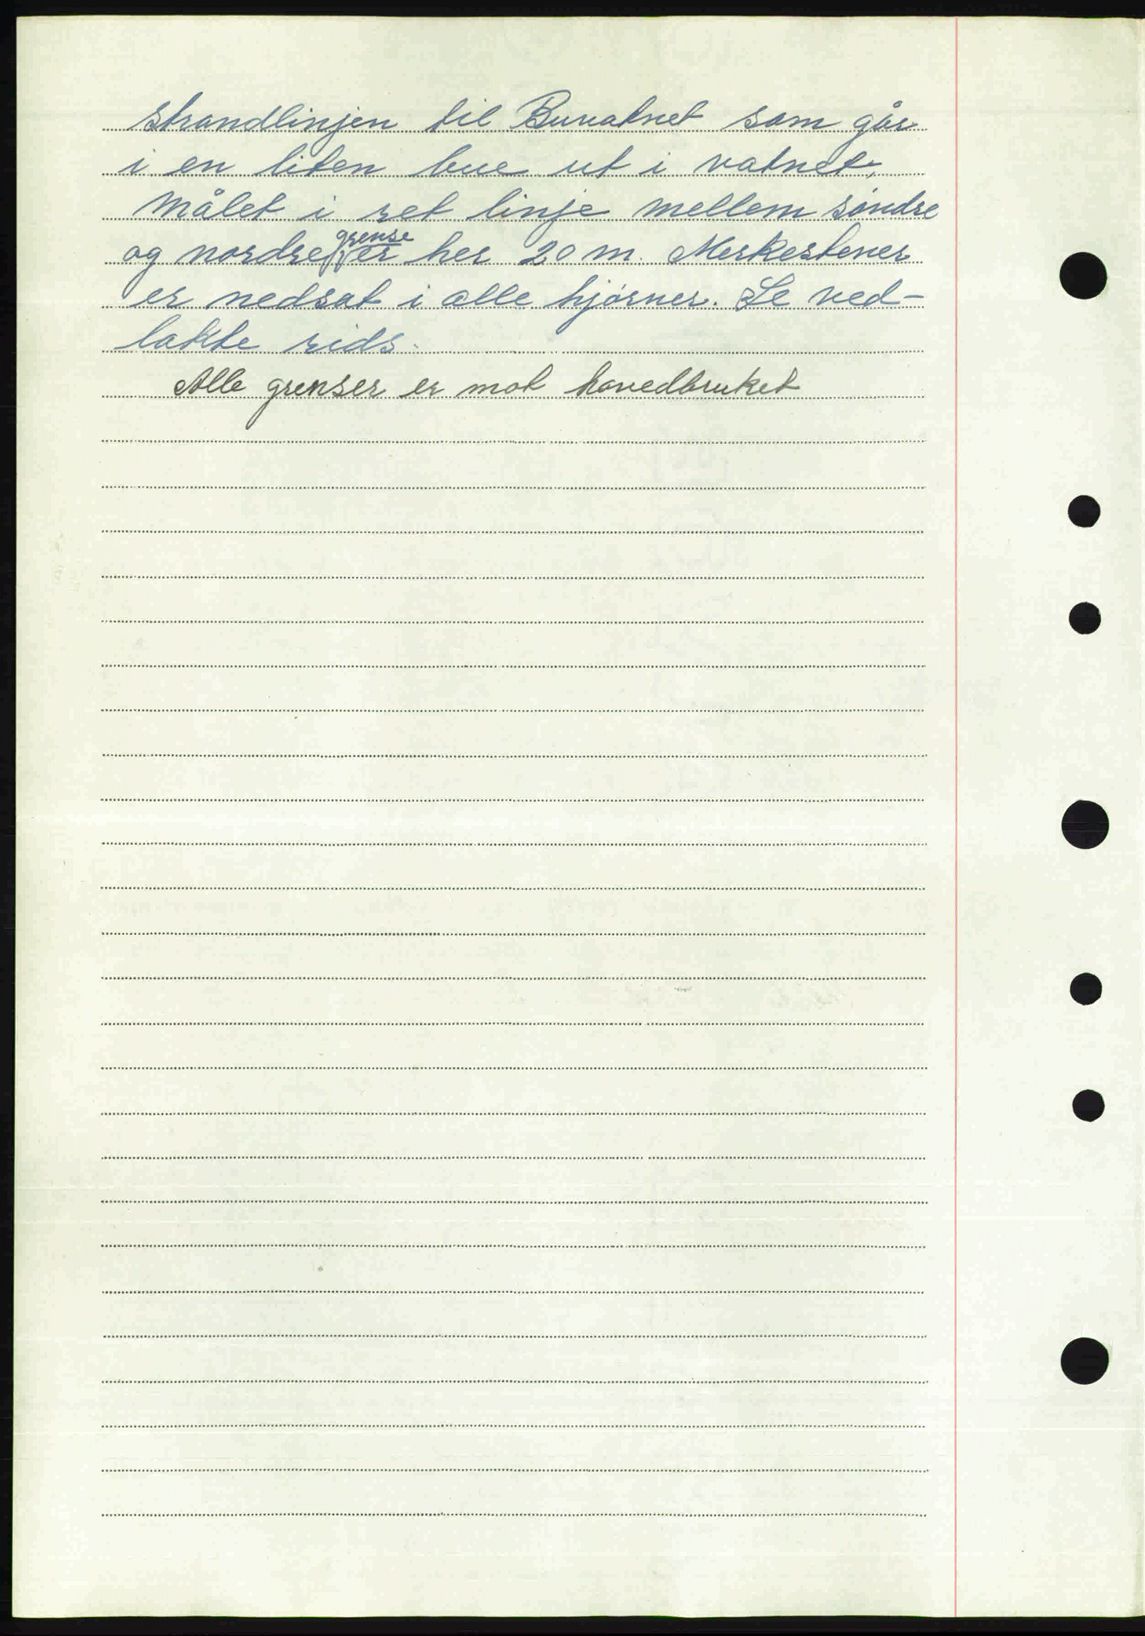 strandlinjen til Buvatnet som går
i en liten bue ut i vatnet,
målet i ret linje mellem søndre
og nordre grense er her 20 m. Merkestener
er nedsat i alle hjørner. Se ved-
lakte rids.
Alle grenser er mot hovedbruket